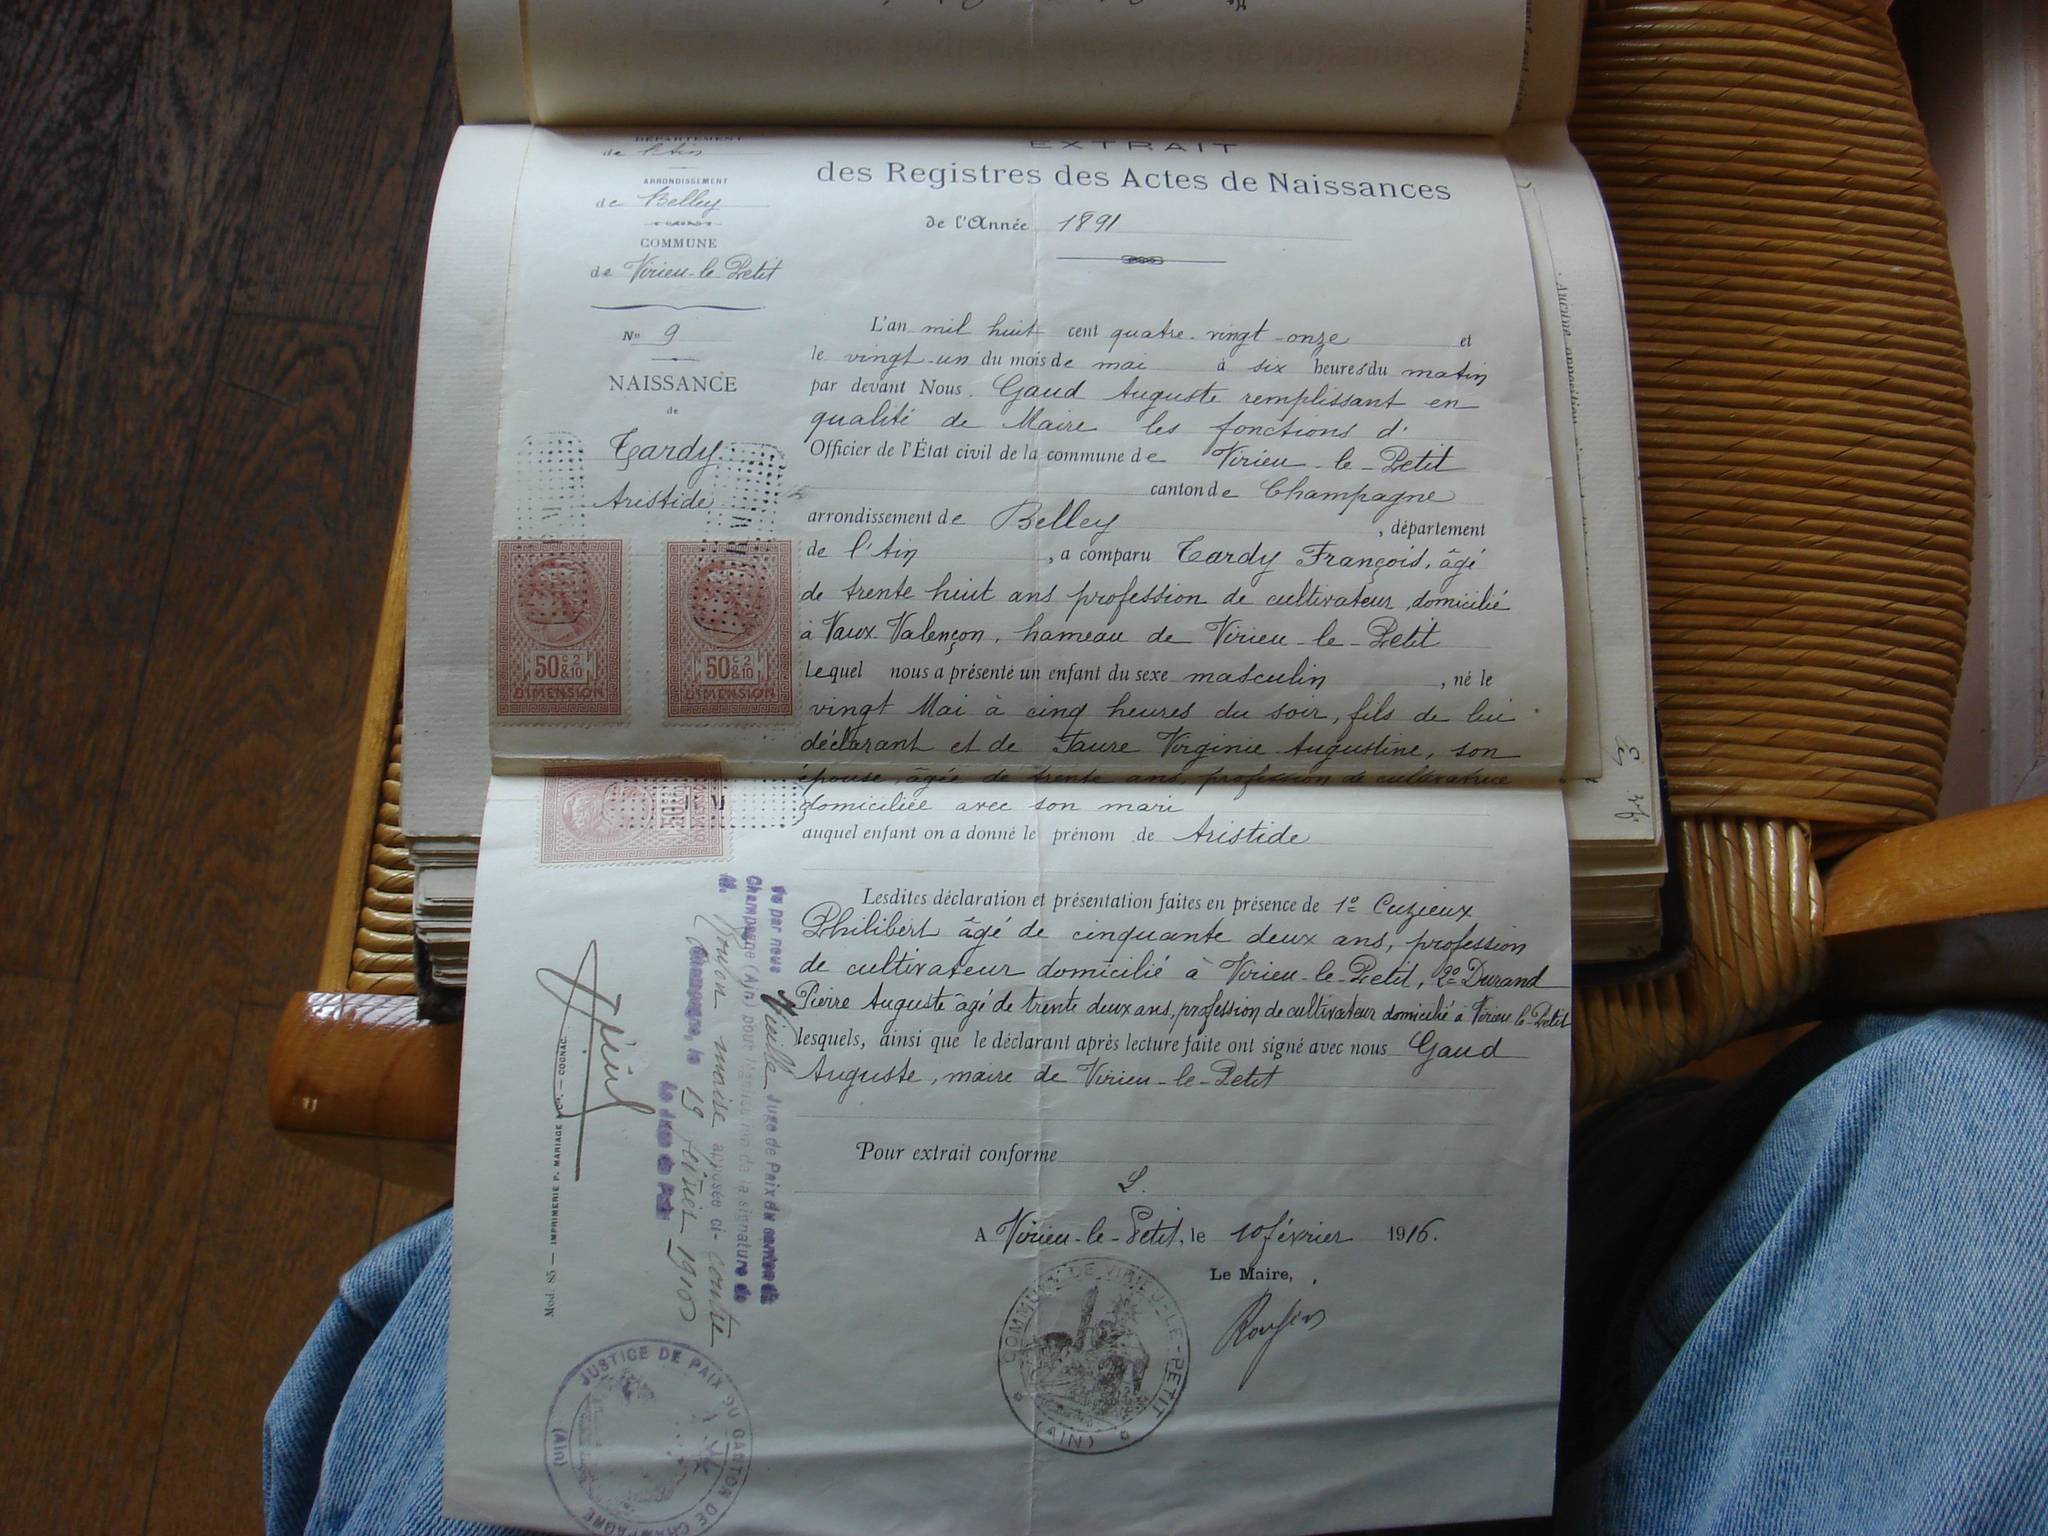 DÉPARTEMENT
de l'Ain
ARRONDISSEMENT
de Belley
COMMUNE
de Virieu-le-Petit
No 9
NAISSANCE
de
Tardy
Aristide
50c 2 &10
DIMENSION
50c 2 &10
DIMENSION
EXTRAIT
des Registres des Actes de Naissances
de l'Année 1891
L'an mil huit cent quatre-vingt-onze et
le vingt-un du mois de mai à six heures du matin
par devant Nous. Gaud Auguste remplissant en
qualité de Maire les fonctions d'
Officier de l'État civil de la commune de Virieu-le-Petit
canton de Champagne
arrondissement de Belley, département
de l'Ain, a comparu Tardy François, âgé
de trente huit ans profession de cultivateur, domicilié
à Vaux-Valençon, hameau de Virieu-le-Petit
Lequel nous a présenté un enfant du sexe masculin, né le
vingt Mai à cinq heures du soir, fils de lui
déclarant et de Faure Virginie Augustine, son
épouse, âgée de trente ans, profession de cultivatrice
domiciliée avec son mari
auquel enfant on a donné le prénom de Aristide
Lesdites déclaration et présentation faites en présence de 1º Cuzieux
Philibert âgé de cinquante deux ans, profession
de cultivateur domicilié à Virieu-le-Petit, 2º Durand
Pierre Auguste âgé de trente deux ans, profession de cultivateur domicilié à Virieu-le-Petit
lesquels, ainsi que le déclarant après lecture faite ont signé avec nous Gaud
Auguste, maire de Virieu-le-Petit
Pour extrait conforme
A Virieu-le-Petit, le 10 février 1916.
Le Maire,
COMMUNE DE VIRIEU-LE-PETIT
(AIN)
Vu par nous Juge de Paix du canton de
Champagne (Ain) pour légalisation de la signature de
M. maire apposée ci-contre
Champagne, le 19 février 1916
Le Juge de Paix
JUSTICE DE PAIX DU CANTON DE CHAMPAGNE
(Ain)
Mod. 85 — IMPRIMERIE P. MARIAGE & Cie. — COGNAC.